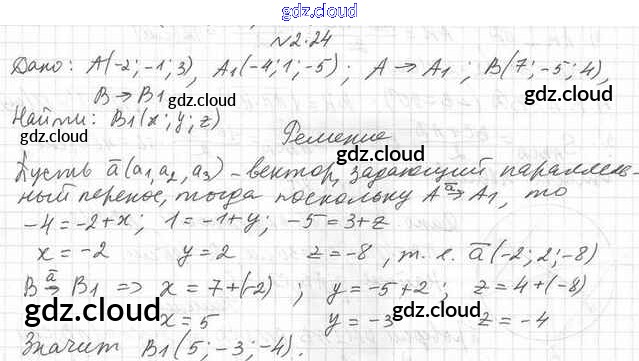 gdz.cloud
№2.24
Дано: A(-2;-1;3), A1(-4;1;-5); A→A1; B(7;-5;4),
B→B1 gdz.cloud gdz.cloud
Найти: B1(x;y;z)
gdz.cloud
Решение
gdz.cloud
Пусть a̅(a1,a2,a3) - вектор, задающий параллель-
ный перенос, тогда поскольку A a̅→ A1, то
-4=-2+x; 1=-1+y; -5=3+z
x=-2 y=2 z=-8, т.е. a̅(-2;2;-8)
B a̅→ B1 => x=7+(-2); y=-5+2; z=4+(-8)
gdz.cloud gdz.cloud gdz.cloud
x=5 y=-3 z=-4
Значит B1(5;-3;-4).